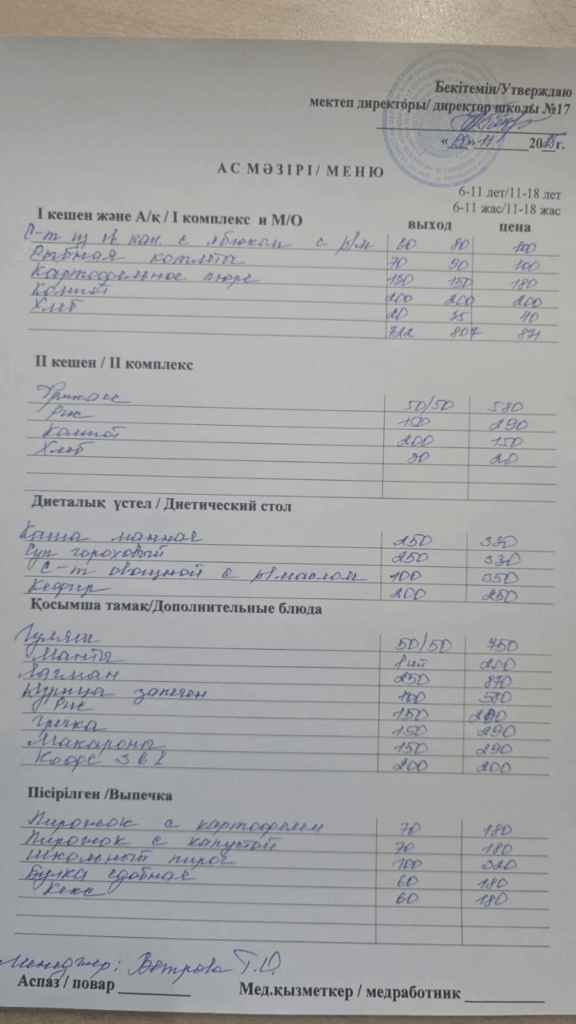 Бекітемін/Утверждаю
мектеп директоры/ директор школы №17
« 20 » 11 2025г.
АС МӘЗІРІ/ МЕНЮ
6-11 лет/11-18 лет
6-11 жас/11-18 жас
І кешен және А/қ / І комплекс и М/О выход цена
С-т из св кап. с яблоком с р/м 60 80 100
Рыбная котлета 70 90 100
Картофельное пюре 130 150 180
Компот 200 200 200
Хлеб 20 35 40
722 807 871
ІІ кешен / ІІ комплекс
Фрикасе 50/50 580
Рис 150 290
Компот 200 150
Хлеб 30 20
Диеталық үстел / Диетический стол
Каша манная 250 330
Суп гороховый 250 330
С-т овощной с р/маслом 100 350
Кефир 200 250
Қосымша тамақ/Дополнительные блюда
Гуляш 50/50 750
Манты 1 шт 200
Лагман 250 870
Курица запечен 100 580
Рис 150 290
Гречка 150 290
Макароны 150 290
Кофе 3 в 1 200 200
Пісірілген /Выпечка
Пирожок с картофелем 70 180
Пирожок с капустой 70 180
Школьный пирог 100 320
Булка сдобная 60 180
Кекс 60 180
Менеджер: Ветрова Т.О.
Аспаз / повар Мед.қызметкер / медработник